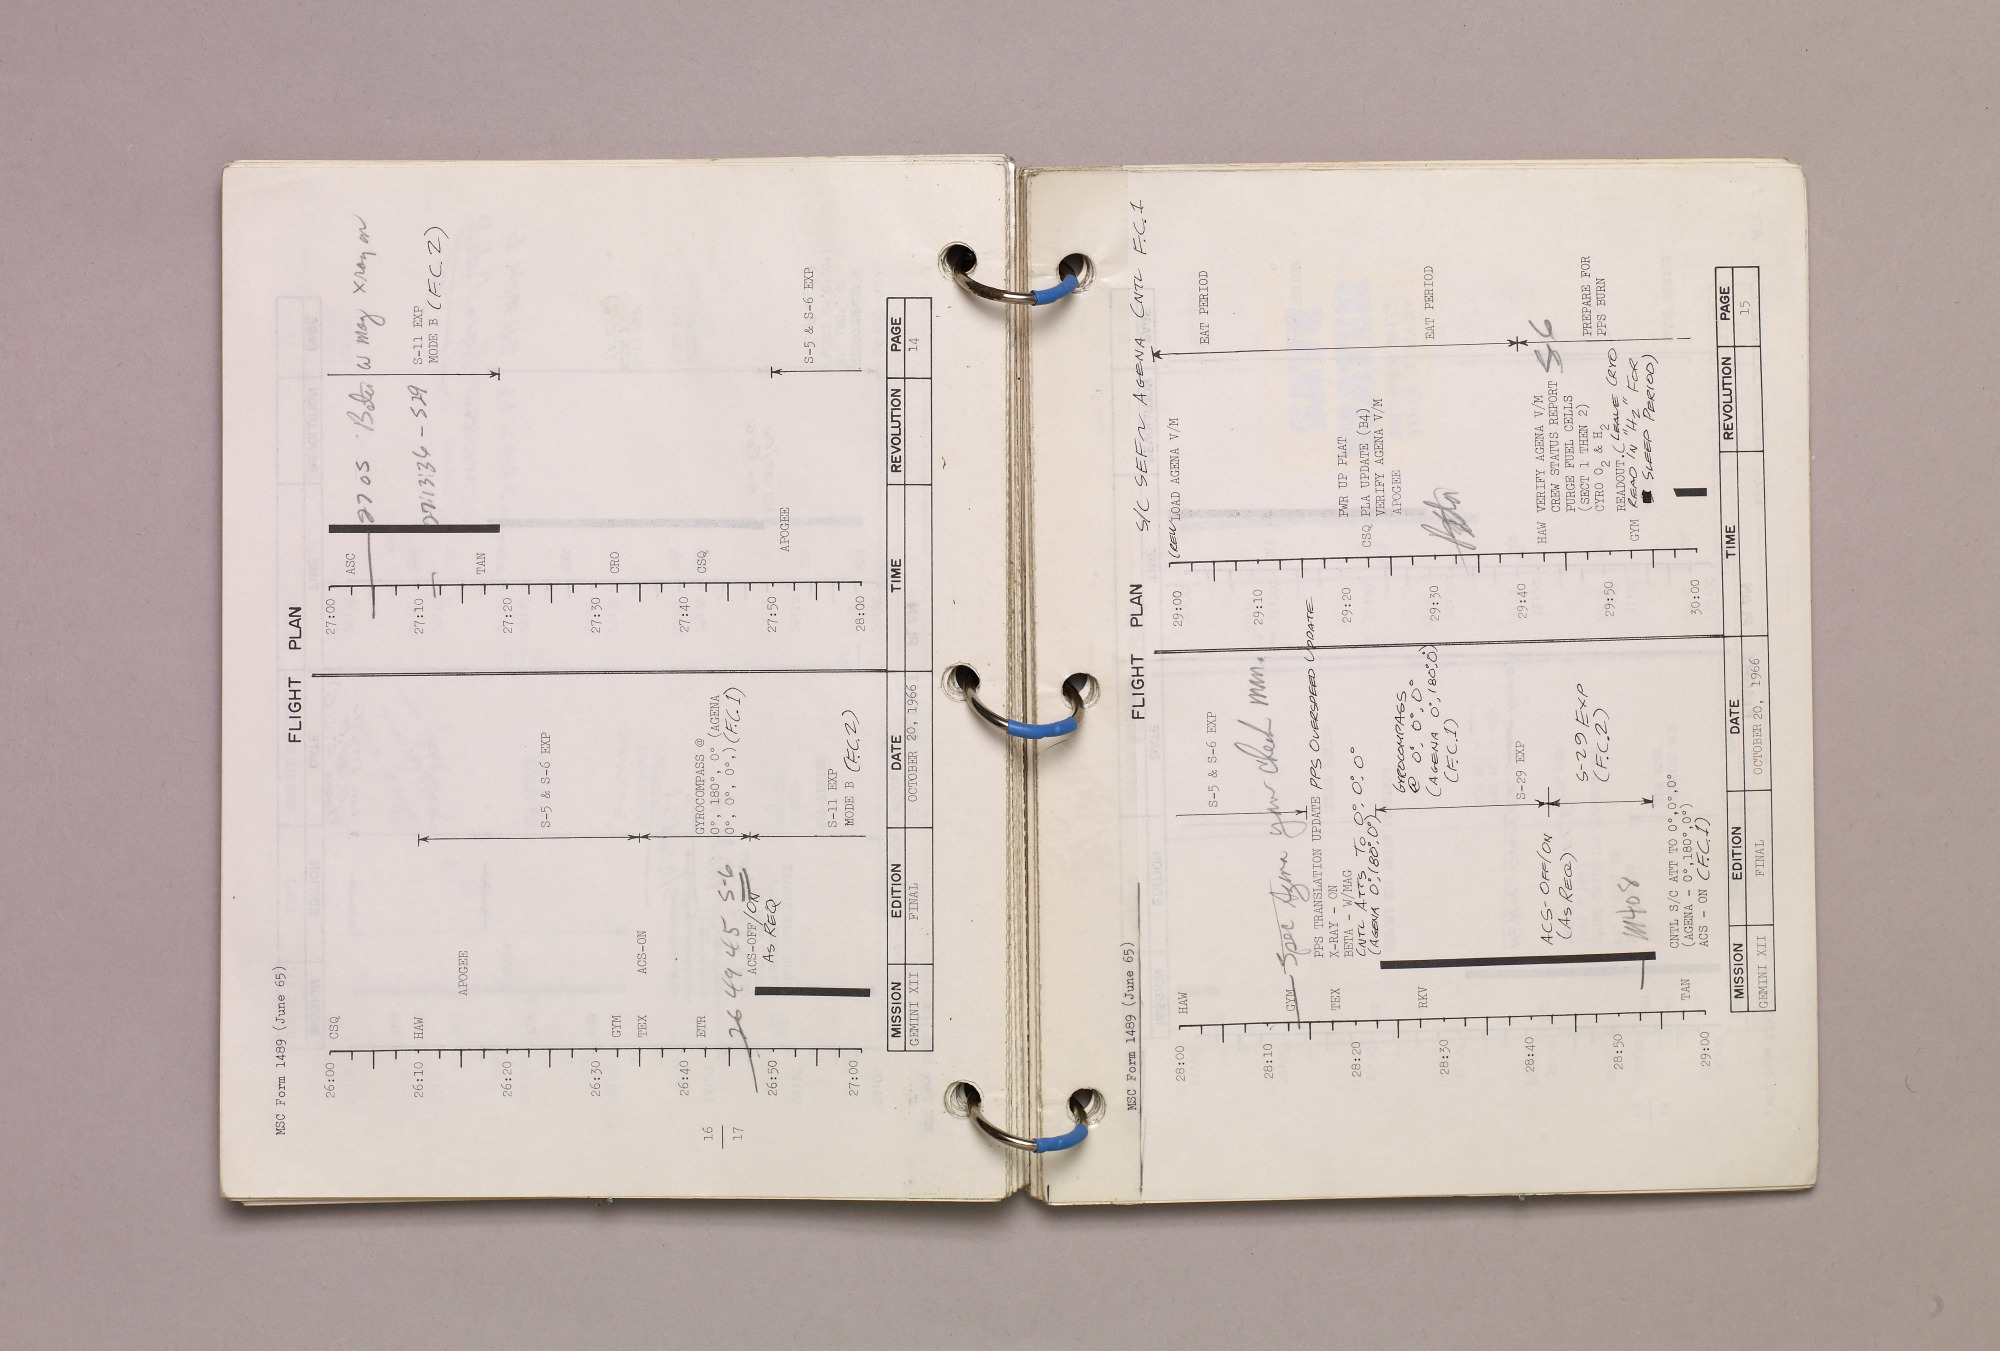 MSC Form 1489 (June 65)
FLIGHT PLAN
26:00
CSQ
26:10
HAW
APOGEE
26:20
S-5 & S-6 EXP
26:30
GYM
TEX
ACS-ON
26:40
ETR
GYROCOMPASS @
0°, 180°, 0° (AGENA
0°, 0°, 0°,) (F.C.1)
26 49 45 S-6
26:50
ACS-OFF/ON
AS REQ
S-11 EXP
MODE B (F.C.2)
27:00
16
17
27:00
ASC
27 05 Beta W mag Xray on
27:10
27:13:36 - S29
S-11 EXP
MODE B (F.C. 2)
TAN
27:20
27:30
CRO
27:40
CSQ
27:50
APOGEE
S-5 & S-6 EXP
28:00
MISSION EDITION DATE TIME REVOLUTION PAGE
GEMINI XII FINAL OCTOBER 20, 1966 14
MSC Form 1489 (June 65)
FLIGHT PLAN
S/C SEF AGENA CNTL F.C.1
28:00
HAW
S-5 & S-6 EXP
28:10
GYM
PPS TRANSLATION UPDATE PPS OVERSPEED UPDATE
X-RAY - ON
TEX
BETA - W/MAG
CNTL ATTS TO 0°, 0°, 0°
(AGENA 0°, 180°, 0°)
28:20
RKV
GYROCOMPASS
@ 0°, 0°, 0°
(AGENA 0°, 180°, 0°)
(F.C.1)
28:30
S-29 EXP
28:40
ACS-OFF/ON
(AS REQ)
S-29 EXP
(F.C.2)
28:50
M408
CNTL S/C ATT TO 0°,0°,0°
TAN
(AGENA - 0°,180°,0°)
ACS - ON (F.C.1)
29:00
29:00
(CREW LOAD AGENA V/M
EAT PERIOD
29:10
29:20
PWR UP PLAT
CSQ PLA UPDATE (B4)
VERIFY AGENA V/M
APOGEE
29:30
EAT PERIOD
Beta
29:40
HAW VERIFY AGENA V/M
CREW STATUS REPORT S6
PURGE FUEL CELLS
(SECT 1 THEN 2)
CYRO O2 & H2
READOUT. (LEAVE CRYO
29:50
GYM READ IN "H2" FOR
SLEEP PERIOD)
PREPARE FOR
PPS BURN
30:00
MISSION EDITION DATE TIME REVOLUTION PAGE
GEMINI XII FINAL OCTOBER 20, 1966 15